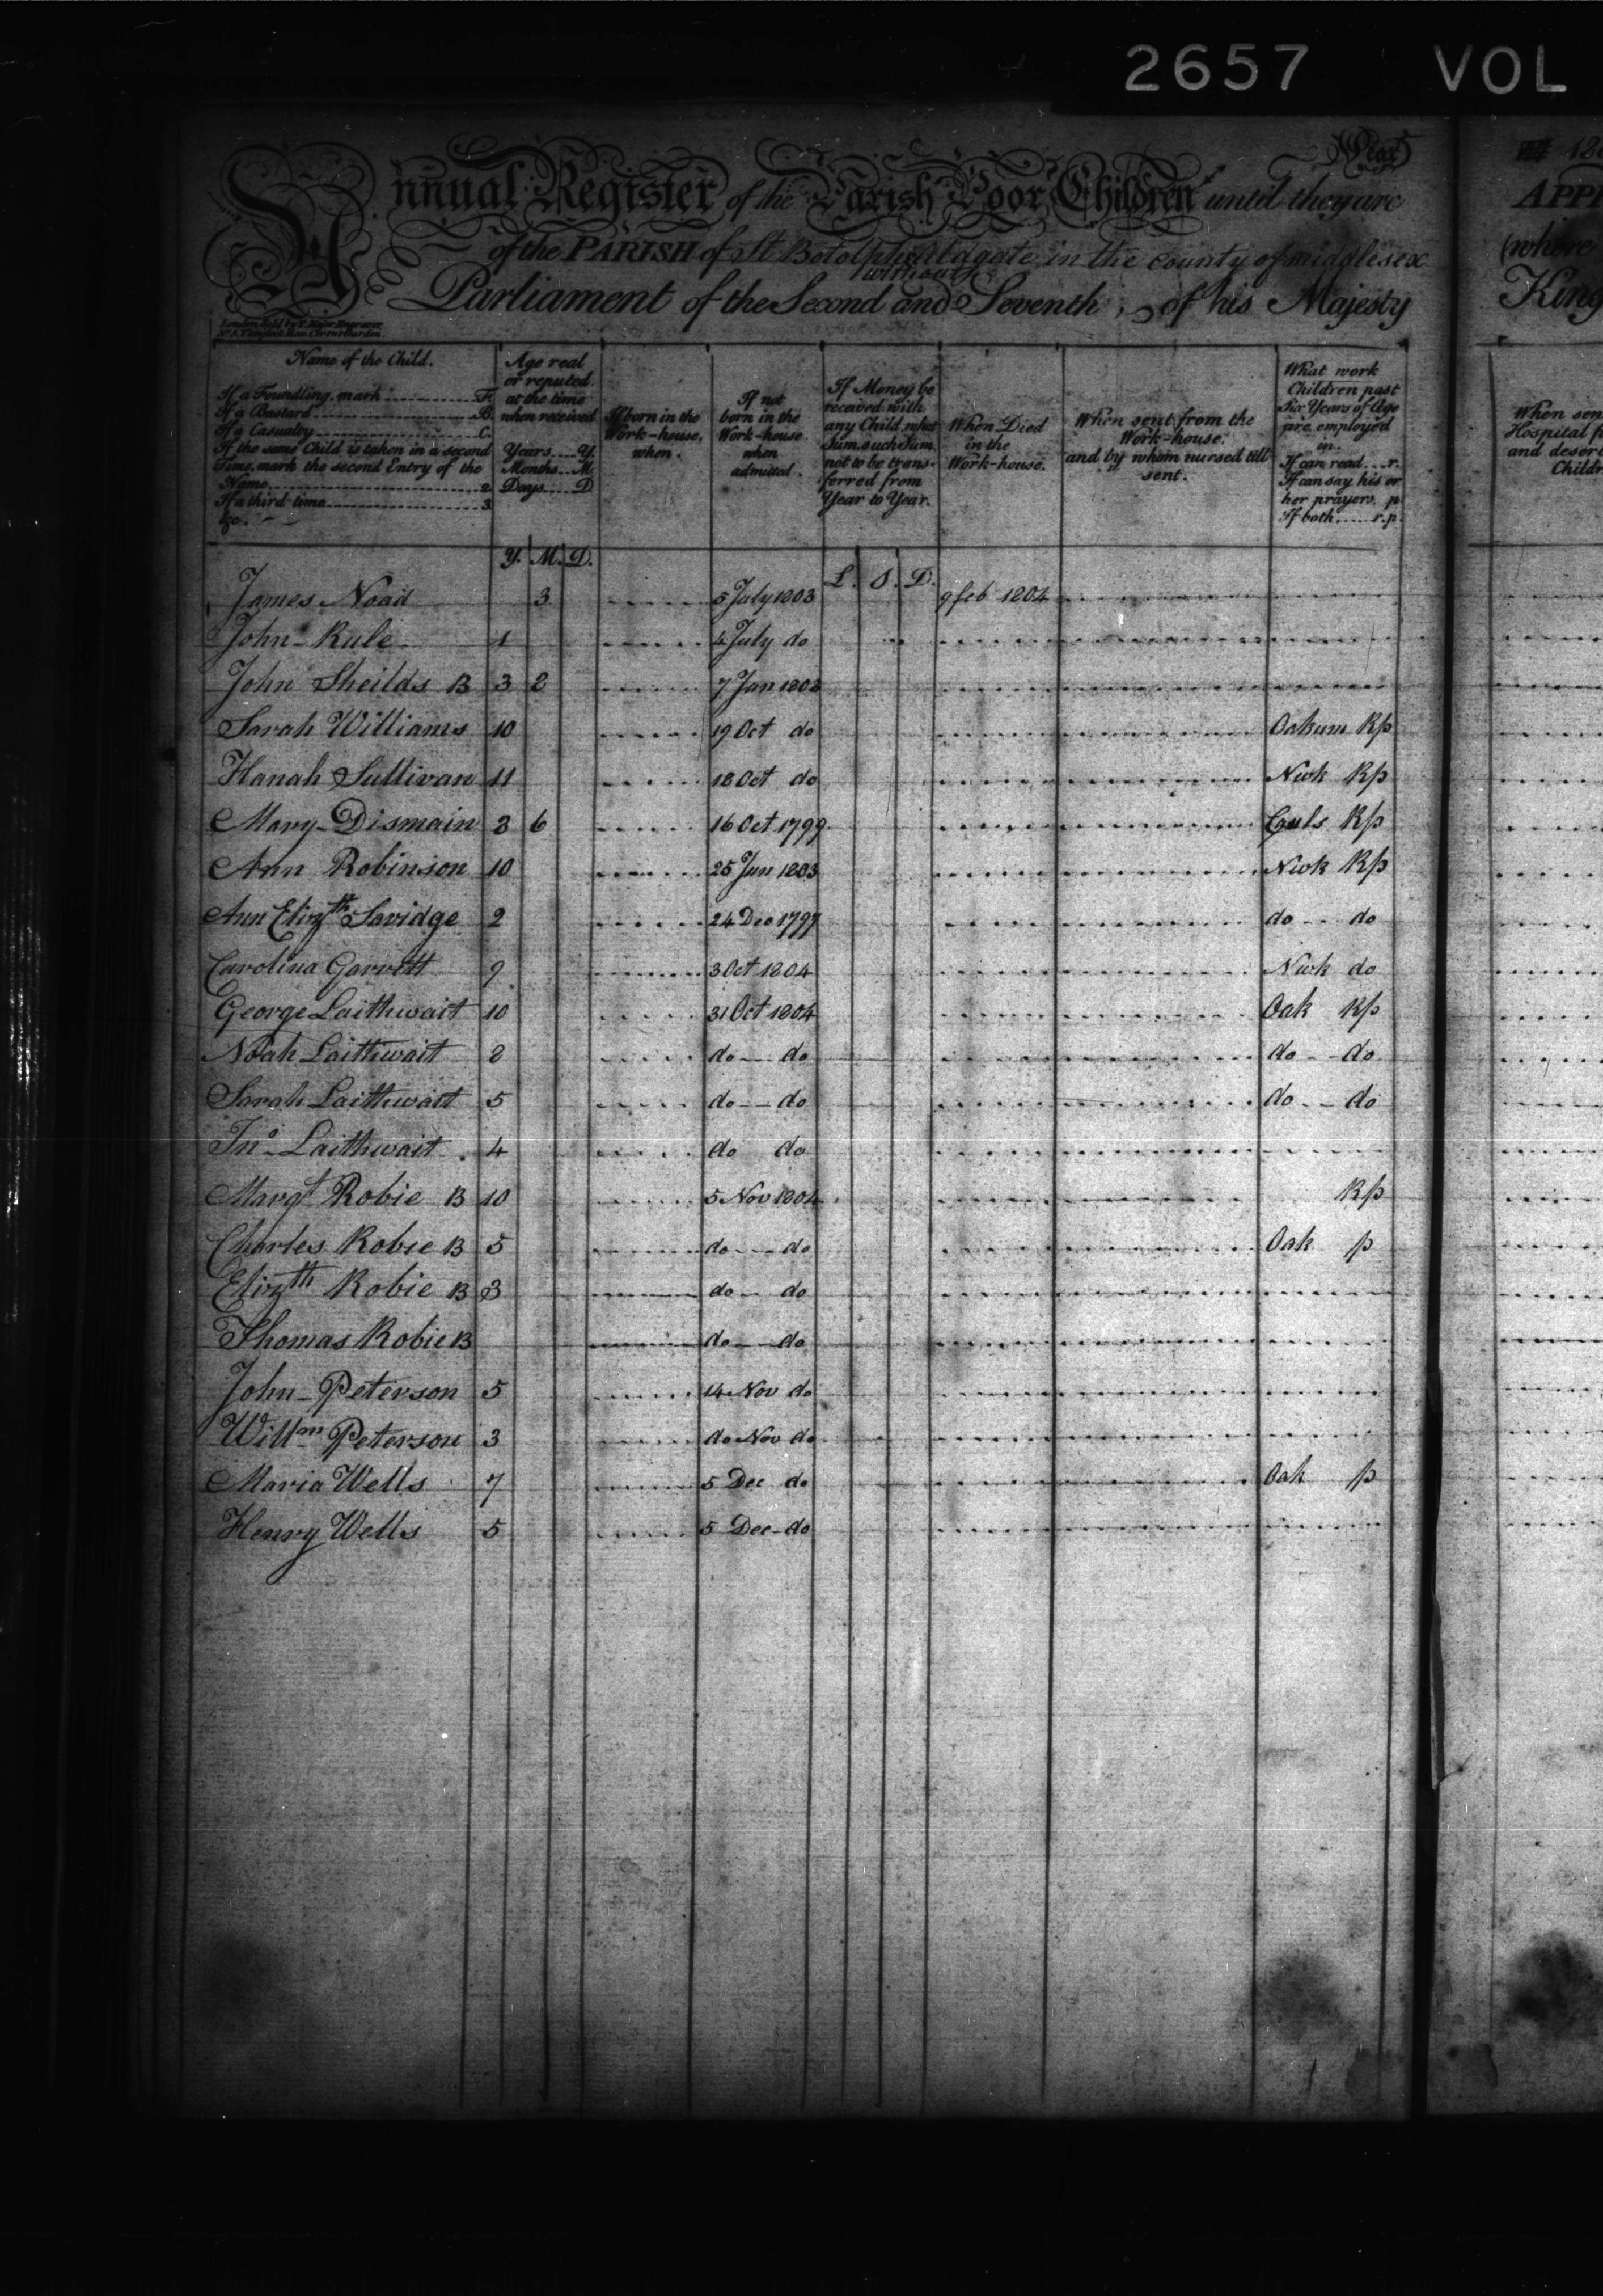 2657 VOL
Year
Annual Register of the Parish Poor Children until they are
of the PARISH of St Botolph Aldgate in the county of middlesex
without
Parliament of the Second and Seventh, of his Majesty
Name of the Child.
If a Foundling, mark F.
If a Bastard B.
If a Casualty C.
If the same Child is taken in a second
Time, mark the second Entry of the
Name 2.
If a third time 3.
&c.
Age real
or reputed
at the time
when received
Years Y.
Months M.
Days D
If born in the
Work-house,
when.
If not
born in the
Work-house
when
admitted.
If Money be
received with
any Child, what
Sum, such Sum
not to be trans-
ferred from
Year to Year.
When Died
in the
Work-house.
When sent from the
Work-house.
and by whom nursed till
sent.
What work
Children past
Six Years of Age
are employed
in.
If can read r.
If can say his or
her prayers, p
If both r.p.
Y. M. D. L. S. D.
James Noad 3 5 July 1803 9 feb 1804
John Rule 1 4 July do
John Sheilds B 3 2 7 Jan 1803
Sarah Williams 10 19 Oct do Oakum Rp
Hanah Sullivan 11 18 Oct do Nwk Rp
Mary Dismain 3 6 16 Oct 1799 Rp
Ann Robinson 10 25 Jan 1803 Nwk Rp
Ann Elizth Savidge 2 24 Dec 1797 do do
Carolina Garrett 9 3 Oct 1804 Nwk do
George Laithwait 10 31 Oct 1804 Oak Rp
Noah Laithwait 8 do do do do
Sarah Laithwait 5 do do do do
Jno Laithwait 4 do do
Margt Robie B 10 5 Nov 1804 Rp
Charles Robie B 5 do do Oak p
Elizth Robie B 3 do do
Thomas Robie B do do
John Peterson 5 14 Nov do
Willm Peterson 3 do Nov do
Maria Wells 7 5 Dec do Oak p
Henry Wells 5 5 Dec do
APP
(where
King
When sen
Hospital f
and deser
Childr